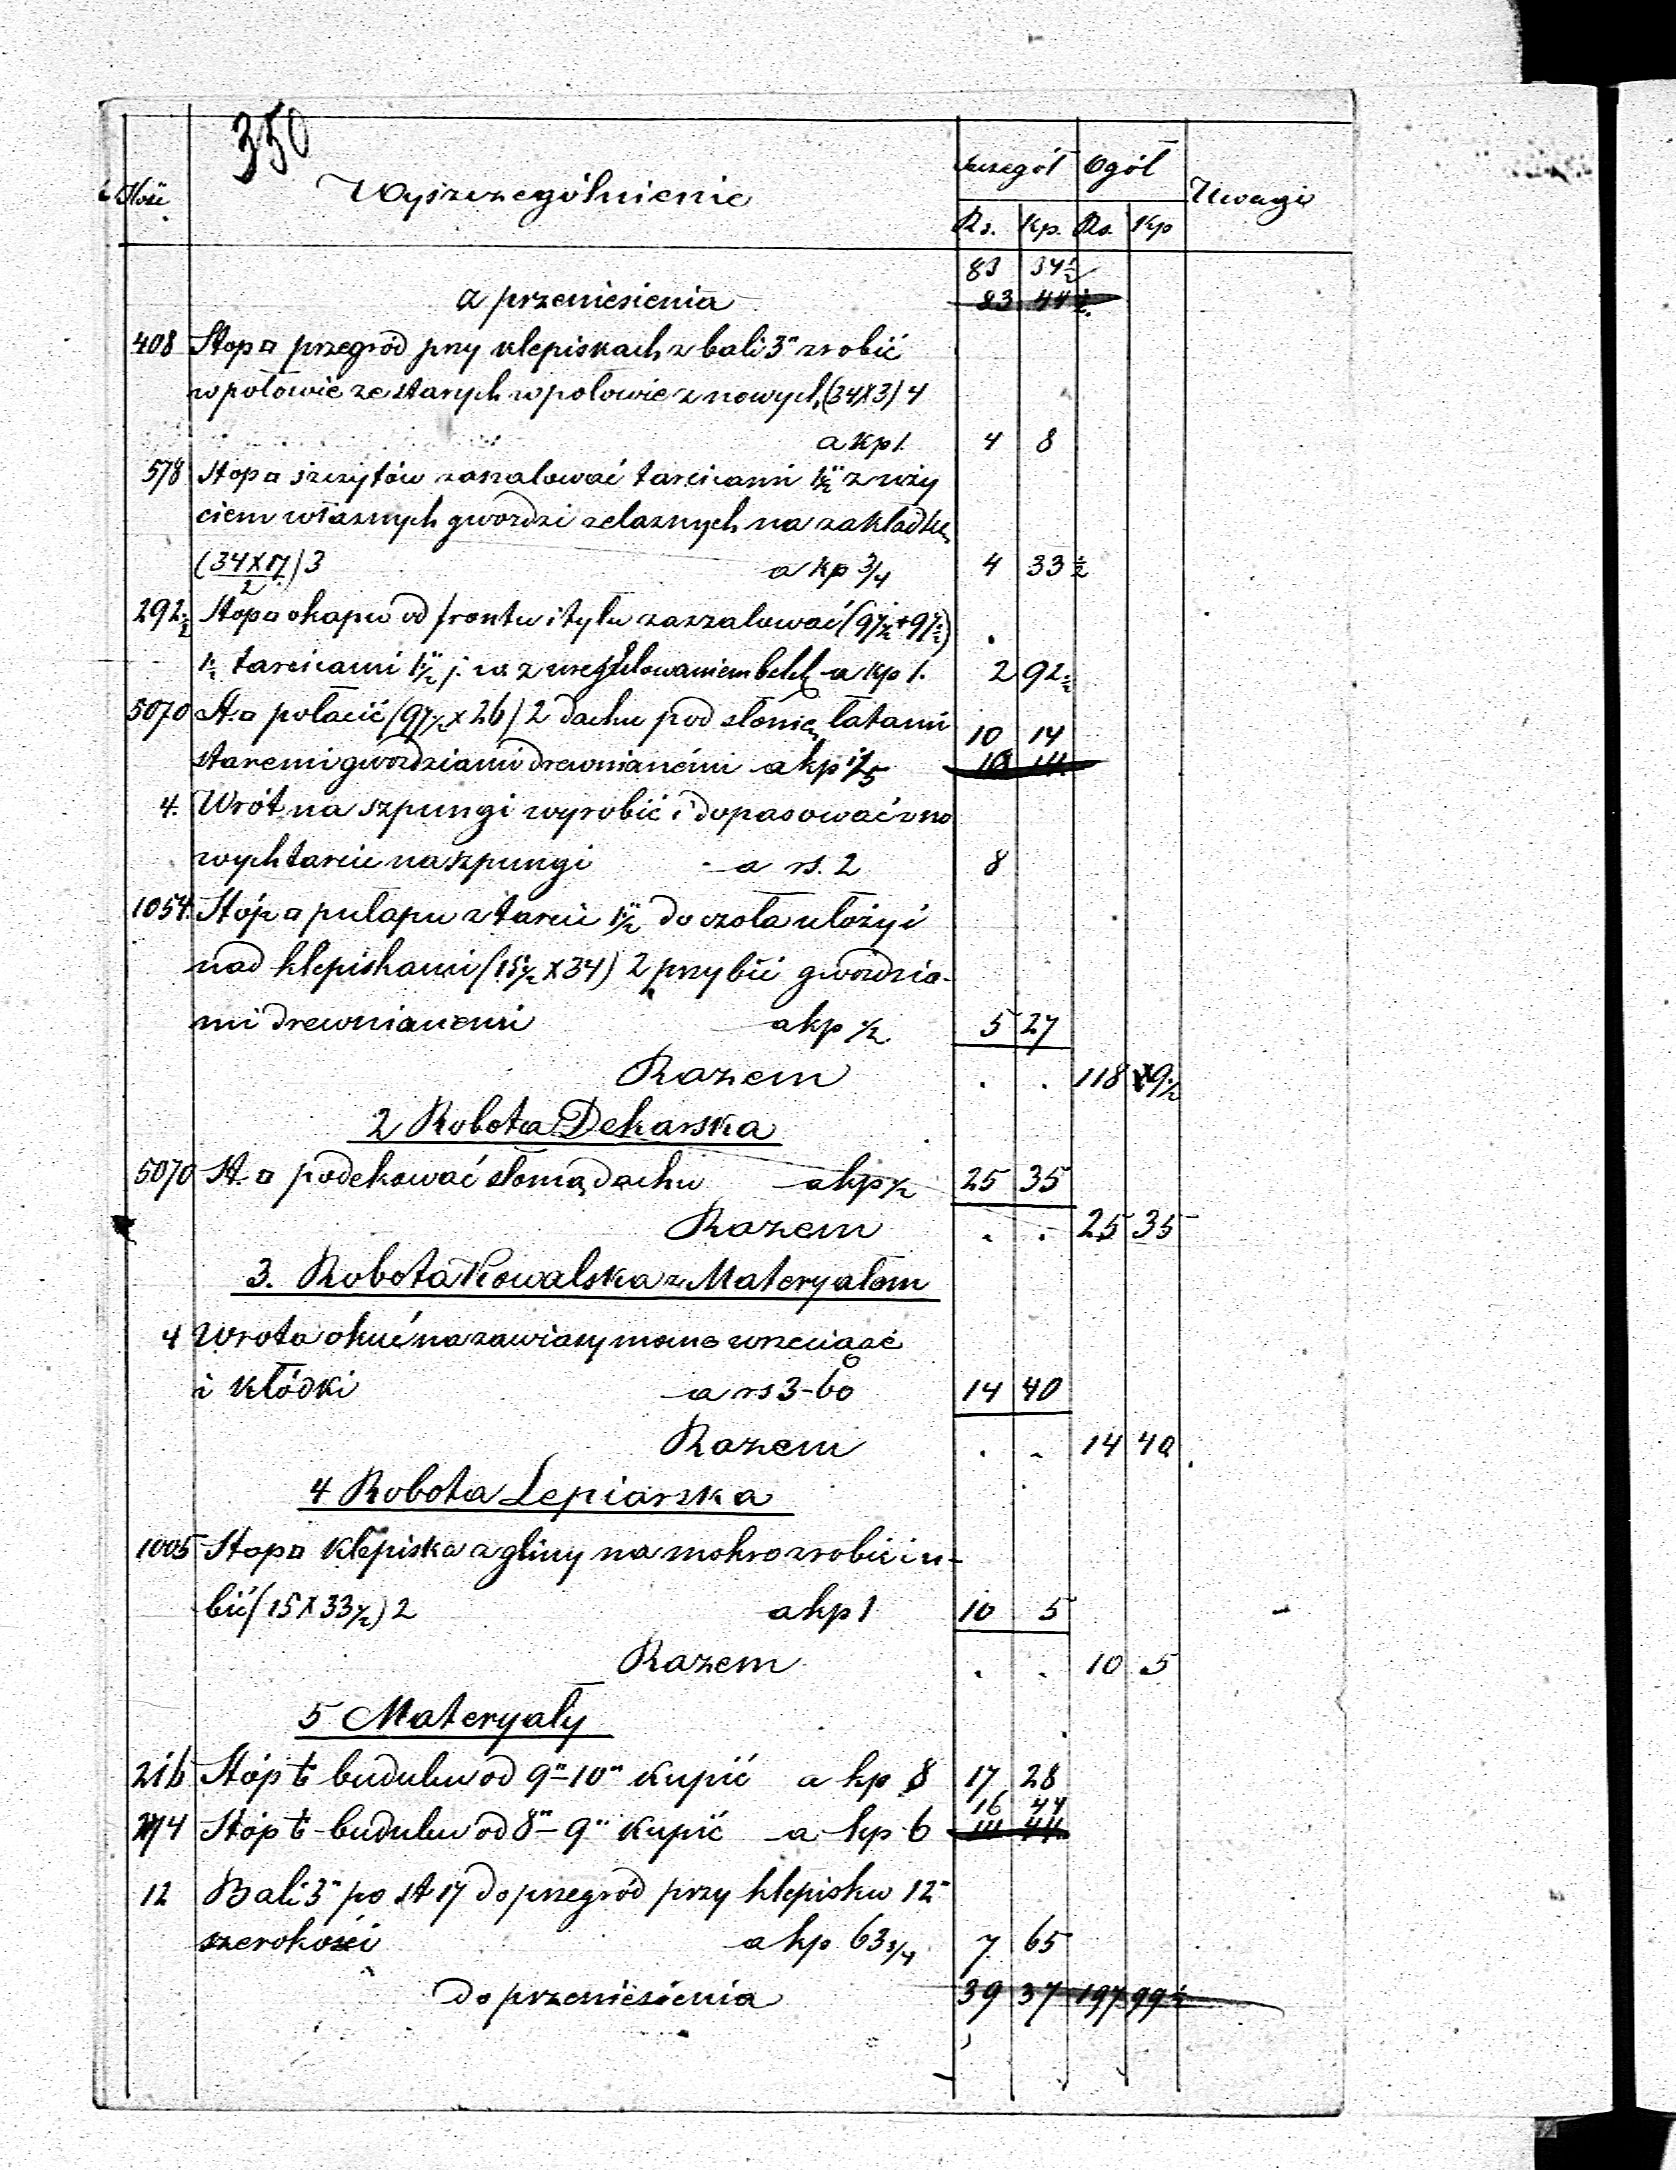 350
Ilość Wyszczególnienie Szczegół Ogół Uwagi
Rs. Kp. Rs. Kp
83 34½
z przeniesienia 83 44½
408 Stop □ przegród przy klepiskach z bali 3" zrobić
w połowie ze starych w połowie z nowych (34X3)4
a kp 1. 4 8
578 Stop □ szczytów zaszalować tarcicami 1½" z uży
ciem własnych gwoździ żelaznych na zakładkę
(34X17/2)3 a kp ¾ 4 33½
292½ Stop □ okapu od frontu i tyłu zaszalować (97½+97½)
1½ tarcicami 1½" j. w. z uregulowaniem belek a kp 1. 2 92½
5070 St. □ połacić (97½ x 26) 2 dachu pod słomę łatami 10 14
staremi gwoździami drewnianemi a kp 1/5
4. Wrót na szpungi wyrobić i dopasować z no
wych tarcic na szpungi a rs. 2 8
1054. Stóp □ pułapu z tarcic 1½" do czoła ułożyć
nad klepiskami (15½ X 34) 2 przybić gwoździa-
mi drewnianemi a kp ½ 5 27
Razem . . 118 9½
2 Robota Dekarska
5070 St. □ podekować słomą dachu a kp ½ 25 35
Razem . . 25 35
3. Robota Kowalska z Materyałem
4 Wrota okuć na zawiasy mocne wrzeciądze
i kłódki a rs 3-60 14 40
Razem . . 14 40
4 Robota Lepiarska
1005 Stop □ klepiska z gliny na mokro zrobić i u-
bić (15 X 33½) 2 a kp 1 10 5
Razem . . 10 5
5 Materyały
216 Stóp b budulcu od 9"-10" kupić a kp 8 17 28
16 44
274 Stóp b budulcu od 8"-9" kupić a kp 6
12 Bali 3" po st 17 do przegród przy klepisku 12"
szerokości a kp 63¾ 7. 65
Do przeniesienia 39 37 197 99½